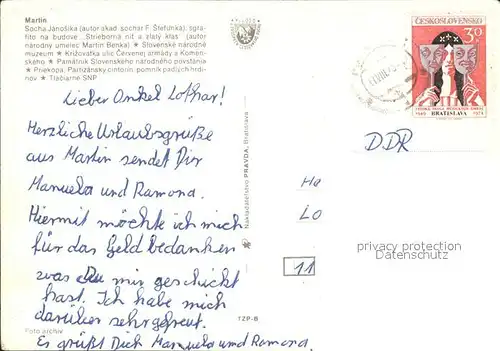 Martin
Socha Jánošíka (autor akad. sochár F. Štefunka), sgra-
fito na budove „Strieborná niť a zlatý klas" (autor
národný umelec Martin Benka) ★ Slovenské národné
múzeum ★ Križovatka ulíc Červenej armády a Komen-
ského ★ Pamätník Slovenského národného povstania
★ Priekopa, Partizánsky cintorín, pomník padlých hrdi-
nov ★ Tlačiarne SNP
Lieber Onkel Lothar!
Herzliche Urlaubsgrüße
aus Martin sendet Dir
Manuela und Ramona.
Hiermit möchte ich mich
für das Geld bedanken
was Du mir geschickt
hast. Ich habe mich
darüber sehr gefreut.
Es grüßt Dich Manuela und Ramona.
Foto archív
TZP-B
Nakladateľstvo PRAVDA, Bratislava
ČESKOSLOVENSKO
30
1949 BRATISLAVA 1974
DDR
LO
11
privacy protection
Datenschutz